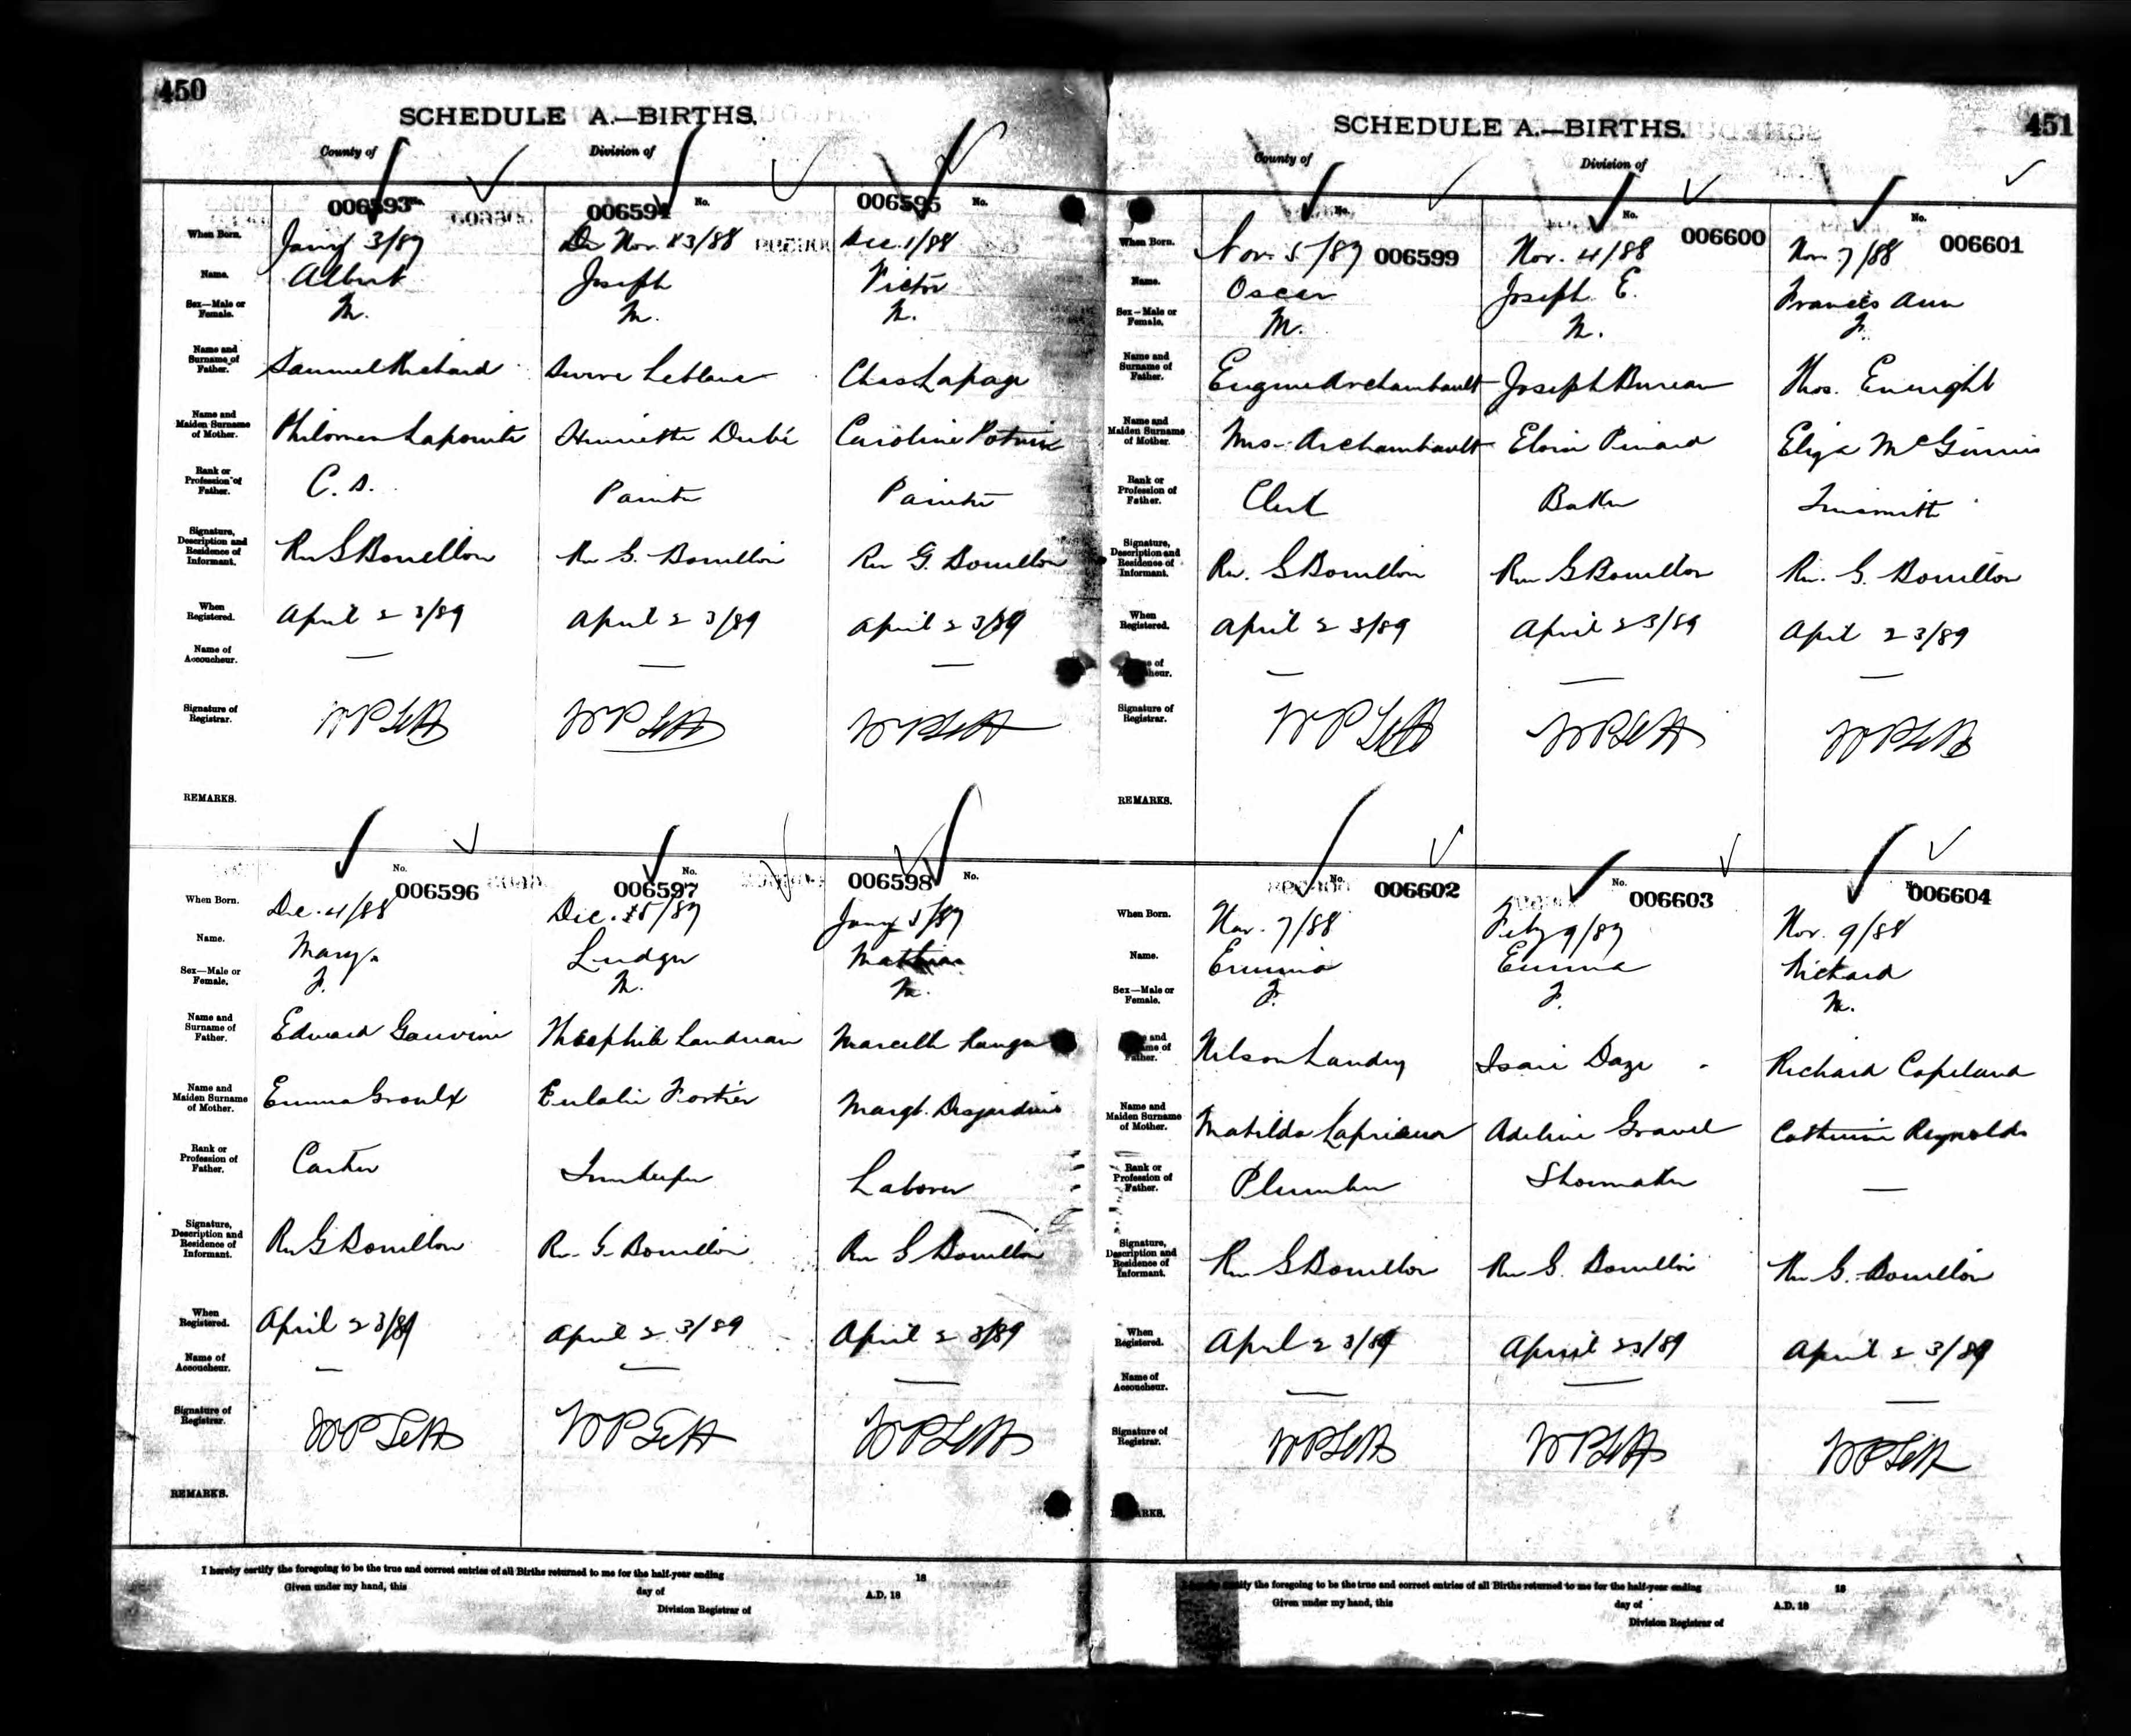 450
SCHEDULE A.—BIRTHS.
County of Division of
006593 No. 006594 No. 006595 No.
When Born. Jany 3/89 Nov. 23/88 Dec. 1/88
Name. Albert Joseph Victor
Sex—Male or Female. M. M. M.
Name and Surname of Father. Samuel Richard Leblanc Chas Lapage
Name and Maiden Surname of Mother. Philomen Lapointe Henriette Dubé Caroline Potvin
Rank or Profession of Father. C. S. Painter Painter
Signature, Description and Residence of Informant. Rev G Bouillon Rev G. Bouillon Rev G. Bouillon
When Registered. April 23/89 April 23/89 April 23/89
Name of Accoucheur. — — —
Signature of Registrar. WP Lett WP Lett WP Lett
REMARKS.
No. 006596 No. 006597 006598 No.
When Born. Dec. 4/88 Dec. /89 Jany 5/89
Name. Mary Ludger
Sex—Male or Female. F. M. M.
Name and Surname of Father. Edward Gauvin Theophile Landrian Marcelle
Name and Maiden Surname of Mother. Emma Groulx Eulalie Fortier Margt. Desjardins
Rank or Profession of Father. Carter Innkeeper Laborer
Signature, Description and Residence of Informant. Rev G Bouillon Rev. G. Bouillon Rev G Bouillon
When Registered. April 23/89 April 23/89 April 23/89
Name of Accoucheur. — — —
Signature of Registrar. WP Lett WP Lett WP Lett
REMARKS.
I hereby certify the foregoing to be the true and correct entries of all Births returned to me for the half-year ending 18
Given under my hand, this day of A.D. 18
Division Registrar of
451
SCHEDULE A.—BIRTHS.
County of Division of
No. 006599 No. 006600 No. 006601
When Born. Nov. 5/89 Nov. 4/88 Nov 7/88
Name. Oscar Joseph E. Francis Ann
Sex—Male or Female. M. M. F.
Name and Surname of Father. Eugene Archambault Joseph Bureau Thos. Enright
Name and Maiden Surname of Mother. Mrs. Archambault Pinard Eliza McGinnis
Rank or Profession of Father. Clerk Baker Tinsmith
Signature, Description and Residence of Informant. Rev. G Bouillon Rev G Bouillon Rev. G. Bouillon
When Registered. April 23/89 April 23/89 April 23/89
— — —
Signature of Registrar. WP Lett WP Lett WP Lett
REMARKS.
No. 006602 No. 006603 No. 006604
When Born. Nov. 7/88 Feby 9/89 Nov. 9/88
Name. Emma Emma Richard
Sex—Male or Female. F. F. M.
Nelson Landry Isaie Daze Richard Copeland
Name and Maiden Surname of Mother. Matilda Adeline Gravel Catherine Reynolds
Rank or Profession of Father. Plumber Shoemaker —
Signature, Description and Residence of Informant. Rev G Bouillon Rev G. Bouillon Rev G. Bouillon
When Registered. April 23/89 April 23/89 April 23/89
Name of Accoucheur. — — —
Signature of Registrar. WP Lett WP Lett WP Lett
the foregoing to be the true and correct entries of all Births returned to me for the half-year ending 18
Given under my hand, this day of A.D. 18
Division Registrar of